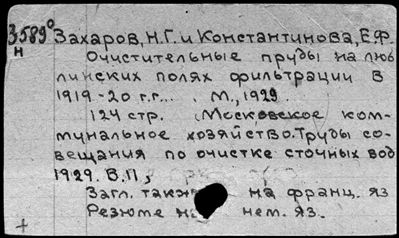 З.589° Захаров, Н.Г. и Константинова, Е.Ф.
н
Очистительные пруды на люб
линских полях фильтрации в
1919-20 г.г... М., 1929.
124 стр. (Московское ком-
мунальное хозяйство. Труды со-
вещания по очистке сточных вод
1929. В.II,
Загл. также на франц. яз
Резюме на нем. яз.